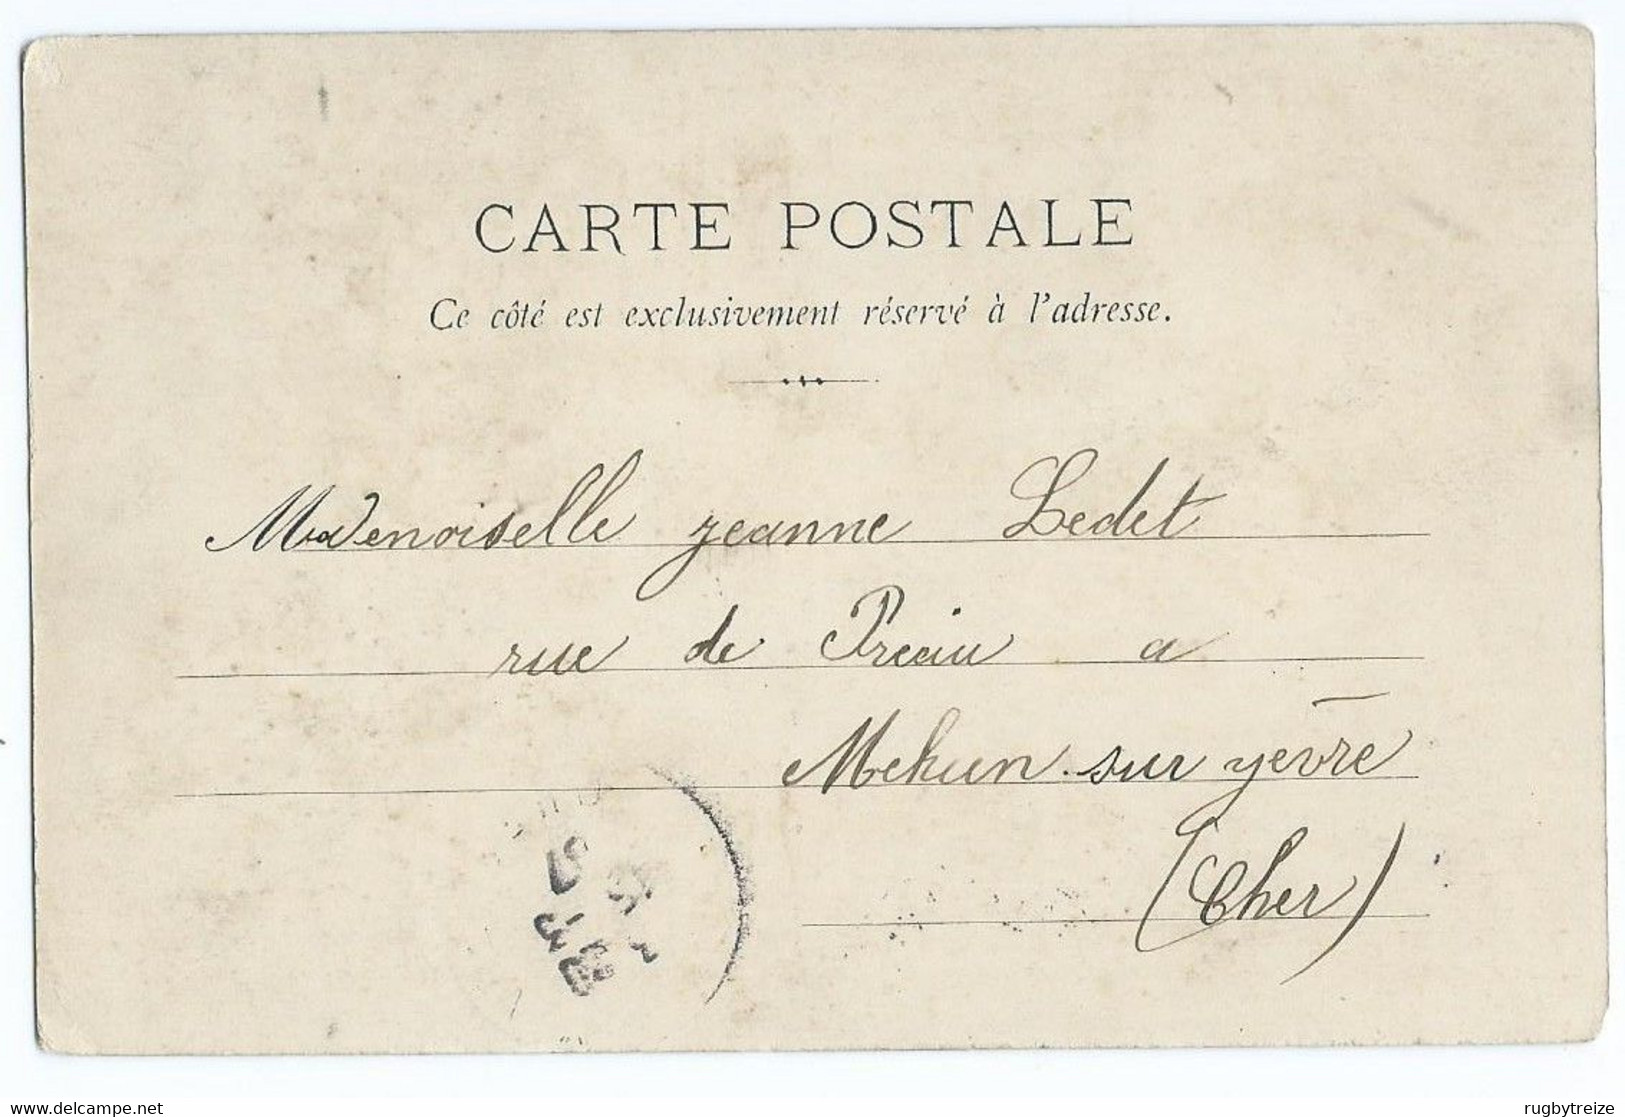 CARTE POSTALE
Ce côté est exclusivement réservé à l'adresse.
Mademoiselle jeanne Ledet
rue de Preau a
Mehun sur yèvre
(Cher)
© delcampe.net
rugbytreize